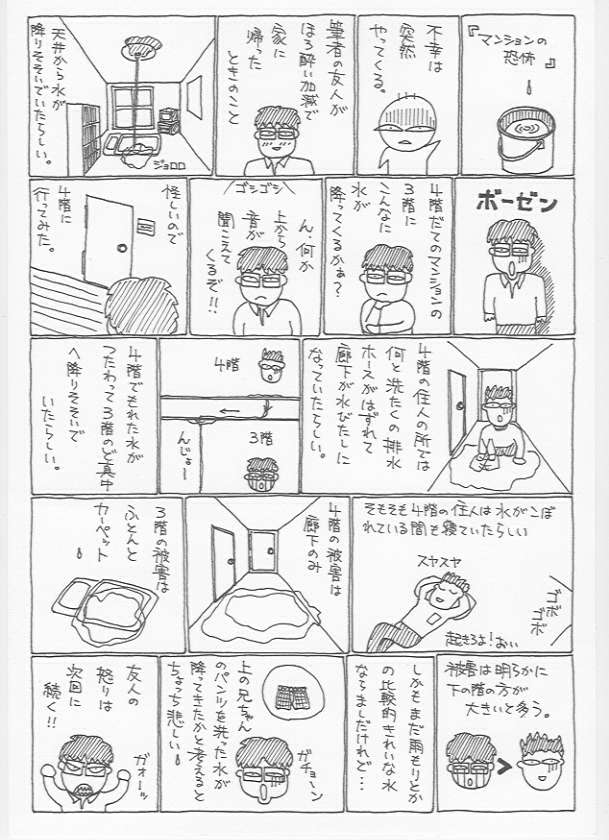 『マンションの
恐怖』
不幸は
突然
やってくる。
筆者の友人が
ほろ酔い加減で
家に
帰った
ときのこと
天井から水が
降りそそいでいたらしい。
ジョロロ
ボーゼン
4階だてのマンションの
3階に
こんなに
水が
降ってくるかぁ?
ゴシゴシ
ん、何か
上から
音が
聞こえて
くるぞ!!
怪しいので
4階に
行ってみた。
4階の住人の所では
何と洗たくの排水
ホースがはずれて
廊下が水びたしに
なっていたらしい。
4階
3階
んじょ〜
4階でもれた水が
つたわって3階のど真中
へ降りそそいで
いたらしい。
そもそも4階の住人は水がこぼ
れている間も寝ていたらしい
スヤスヤ
ゴボ
ゴボ
起きろよ!おぃ
4階の被害は
廊下のみ
3階の被害は
ふとんと
カーペット
被害は明らかに
下の階の方が
大きいと多う。
>
しかもまだ雨もりとか
の比較的きれいな水
ならましだけれど…
上の兄ちゃん
のパンツを洗った水が
降ってきたかと考えると
ちょっち悲しい
ガチョーン
友人の
怒りは
次回に
続く!!
ガオーッ